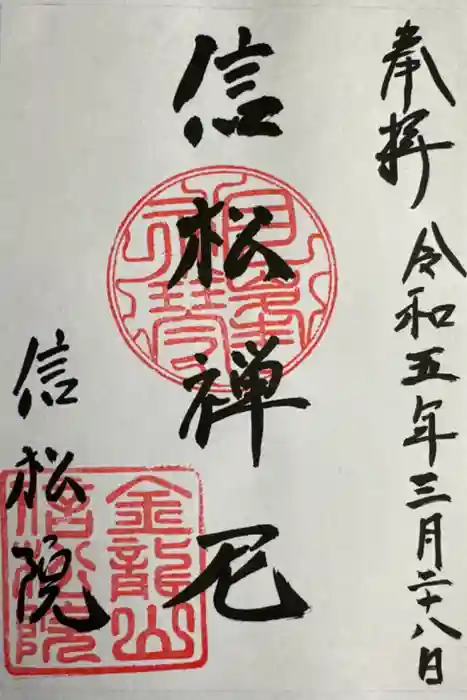 奉拝 令和五年三月二十八日
信松禅尼
信松院
金龍山
信松院